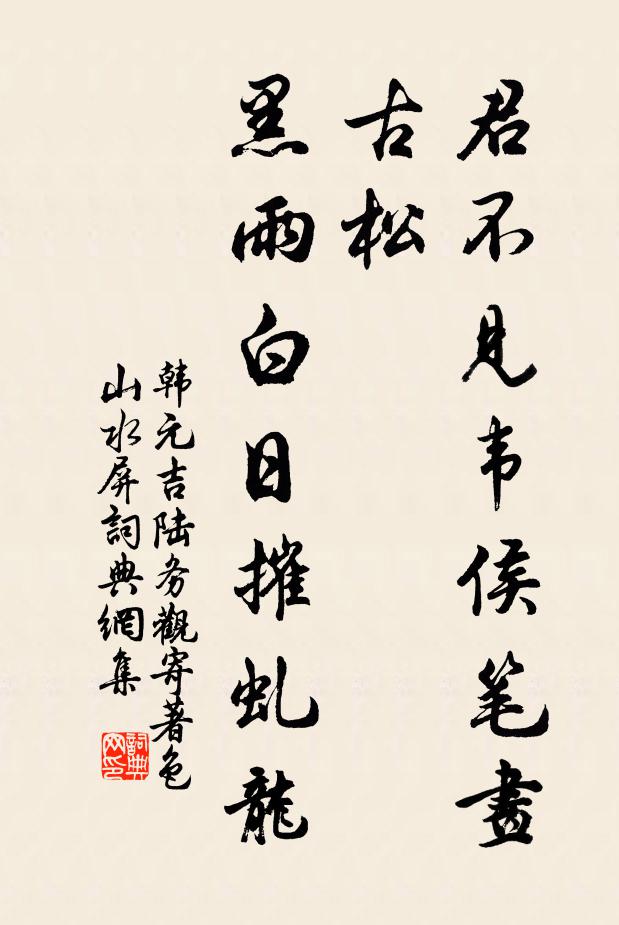 君不见韦侯笔畫
古松
黑雨白日摧虬龍
韩元吉陆务觀寄著色
山水屏詞典網集
詞典
网印